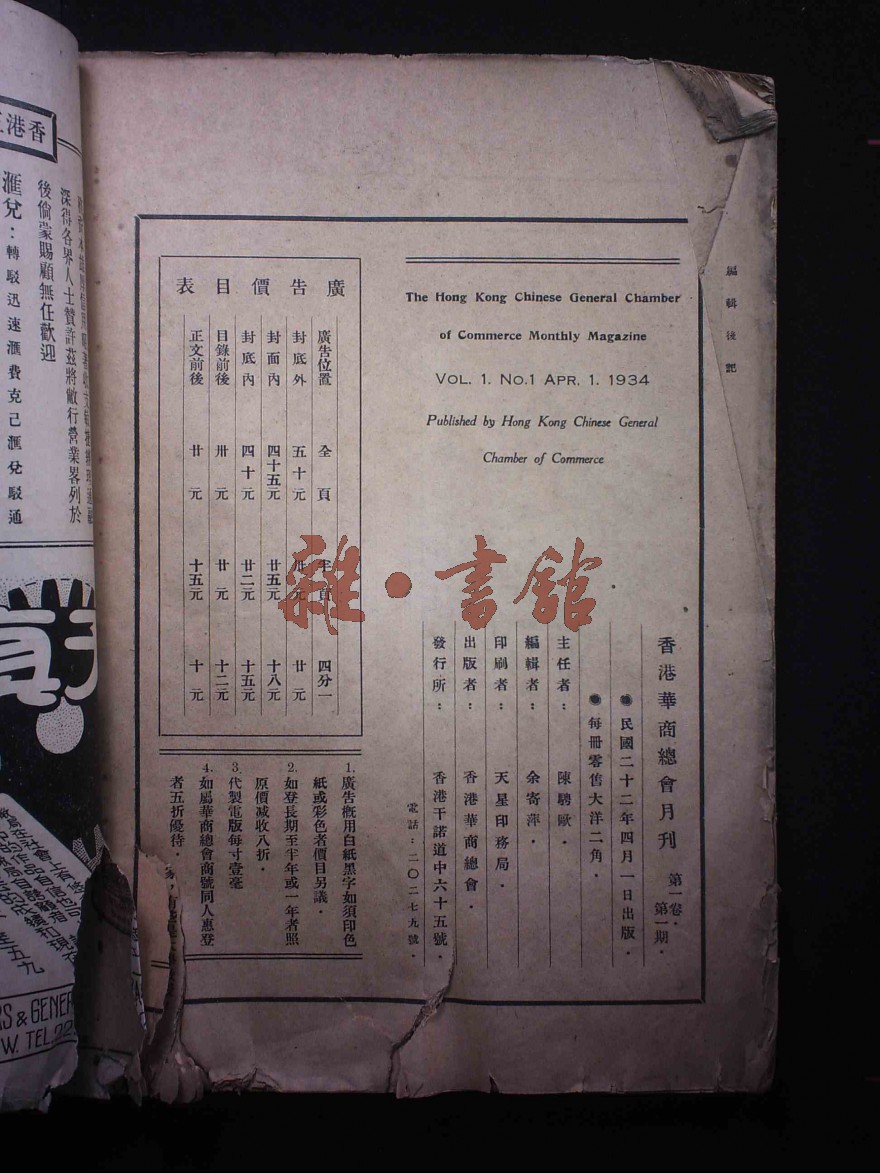 編輯後記
The Hong Kong Chinese General Chamber
of Commerce Monthly Magazine
VOL. 1. NO.1 APR. 1. 1934
Published by Hong Kong Chinese General
Chamber of Commerce
香港華商總會月刊 第一卷・第一期・
●民國二十二年四月一日出版・
●每冊零售大洋二角・
主任者：陳騁歐・
編輯者：余寄萍・
印刷者：天星印務局・
出版者：香港華商總會・
發行所：香港干諾道中六十五號・
電話：二〇二七九號・
廣告價目表
廣告位置 全頁 半頁 四分一
封底外 五十元 卅元 廿元
封面內 四十五元 廿五元 十八元
封底內 四十元 廿二元 十五元
目錄前後 卅元 廿元 十二元
正文前後 廿元 十五元 十元
1. 廣告概用白紙黑字如須印色
紙或彩色者價目另議・
2. 如登長期至半年或一年者照
原價減收八折・
3. 代製電版每寸壹毫
4. 如屬華商總會商號同人惠登
者五折優待・
雜・書館
香港
深得各界人士贊許茲將敝行營業畧列於
後倘蒙賜顧無任歡迎
滙兌：轉駁迅速滙費克己滙兌駁通
RS & GENER
W. TEL.22